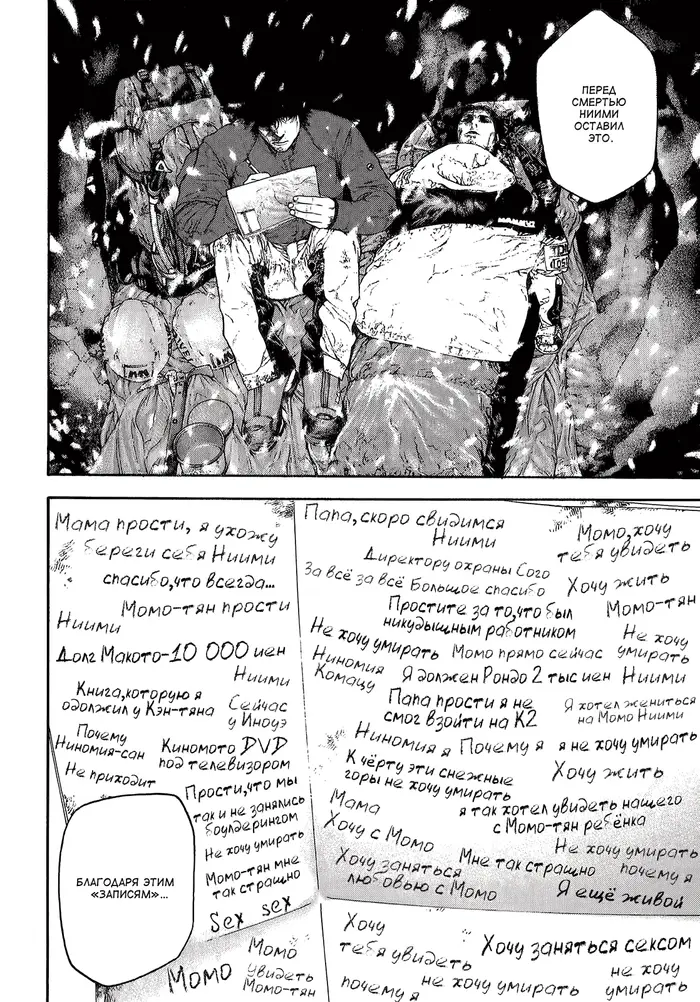 ПЕРЕД
СМЕРТЬЮ
НИИМИ
ОСТАВИЛ
ЭТО.
Мама прости, я ухожу
береги себя Ниими
спасибо, что всегда...
Момо-тян прости
Ниими
Долг Макото-10 000 иен
Ниими
Книга, которую я
одолжил у Кэн-тяна
Сейчас
у Иноуэ
Почему
Ниномия-сан
Не приходит
Киномото DVD
под телевизором
Прости, что мы
так и не занялись
боулдерингом
Не хочу умирать
Момо-тян мне
так страшно
Sex sex
Папа, скоро свидимся
Ниими
Момо, хочу
тебя увидеть
Директору охраны Сого
За всё за всё Большое спасибо
Хочу жить
Простите за то, что был
никудышным работником
Момо-тян
Не хочу умирать
Момо прямо сейчас
Не хочу
умирать
Ниномия
Комацу
Я должен Рондо 2 тыс иен
Ниими
Папа прости я не
смог взойти на К2
Я хотел жениться
на Момо Ниими
Ниномия я
Почему я
я не хочу умирать
К чёрту эти снежные
горы не хочу умирать
Хочу жить
Мама
Хочу с Момо
я так хотел увидеть нашего
с Момо-тян ребёнка
Хочу заняться
любовью с Момо
Мне так страшно
Не хочу умирать
почему я
Я ещё живой
БЛАГОДАРЯ ЭТИМ
«ЗАПИСЯМ»...
Момо
Момо
увидеть
Момо-тян
Хочу
тебя увидеть
Хочу заняться сексом
почему я
не хочу умирать
не хочу
умирать